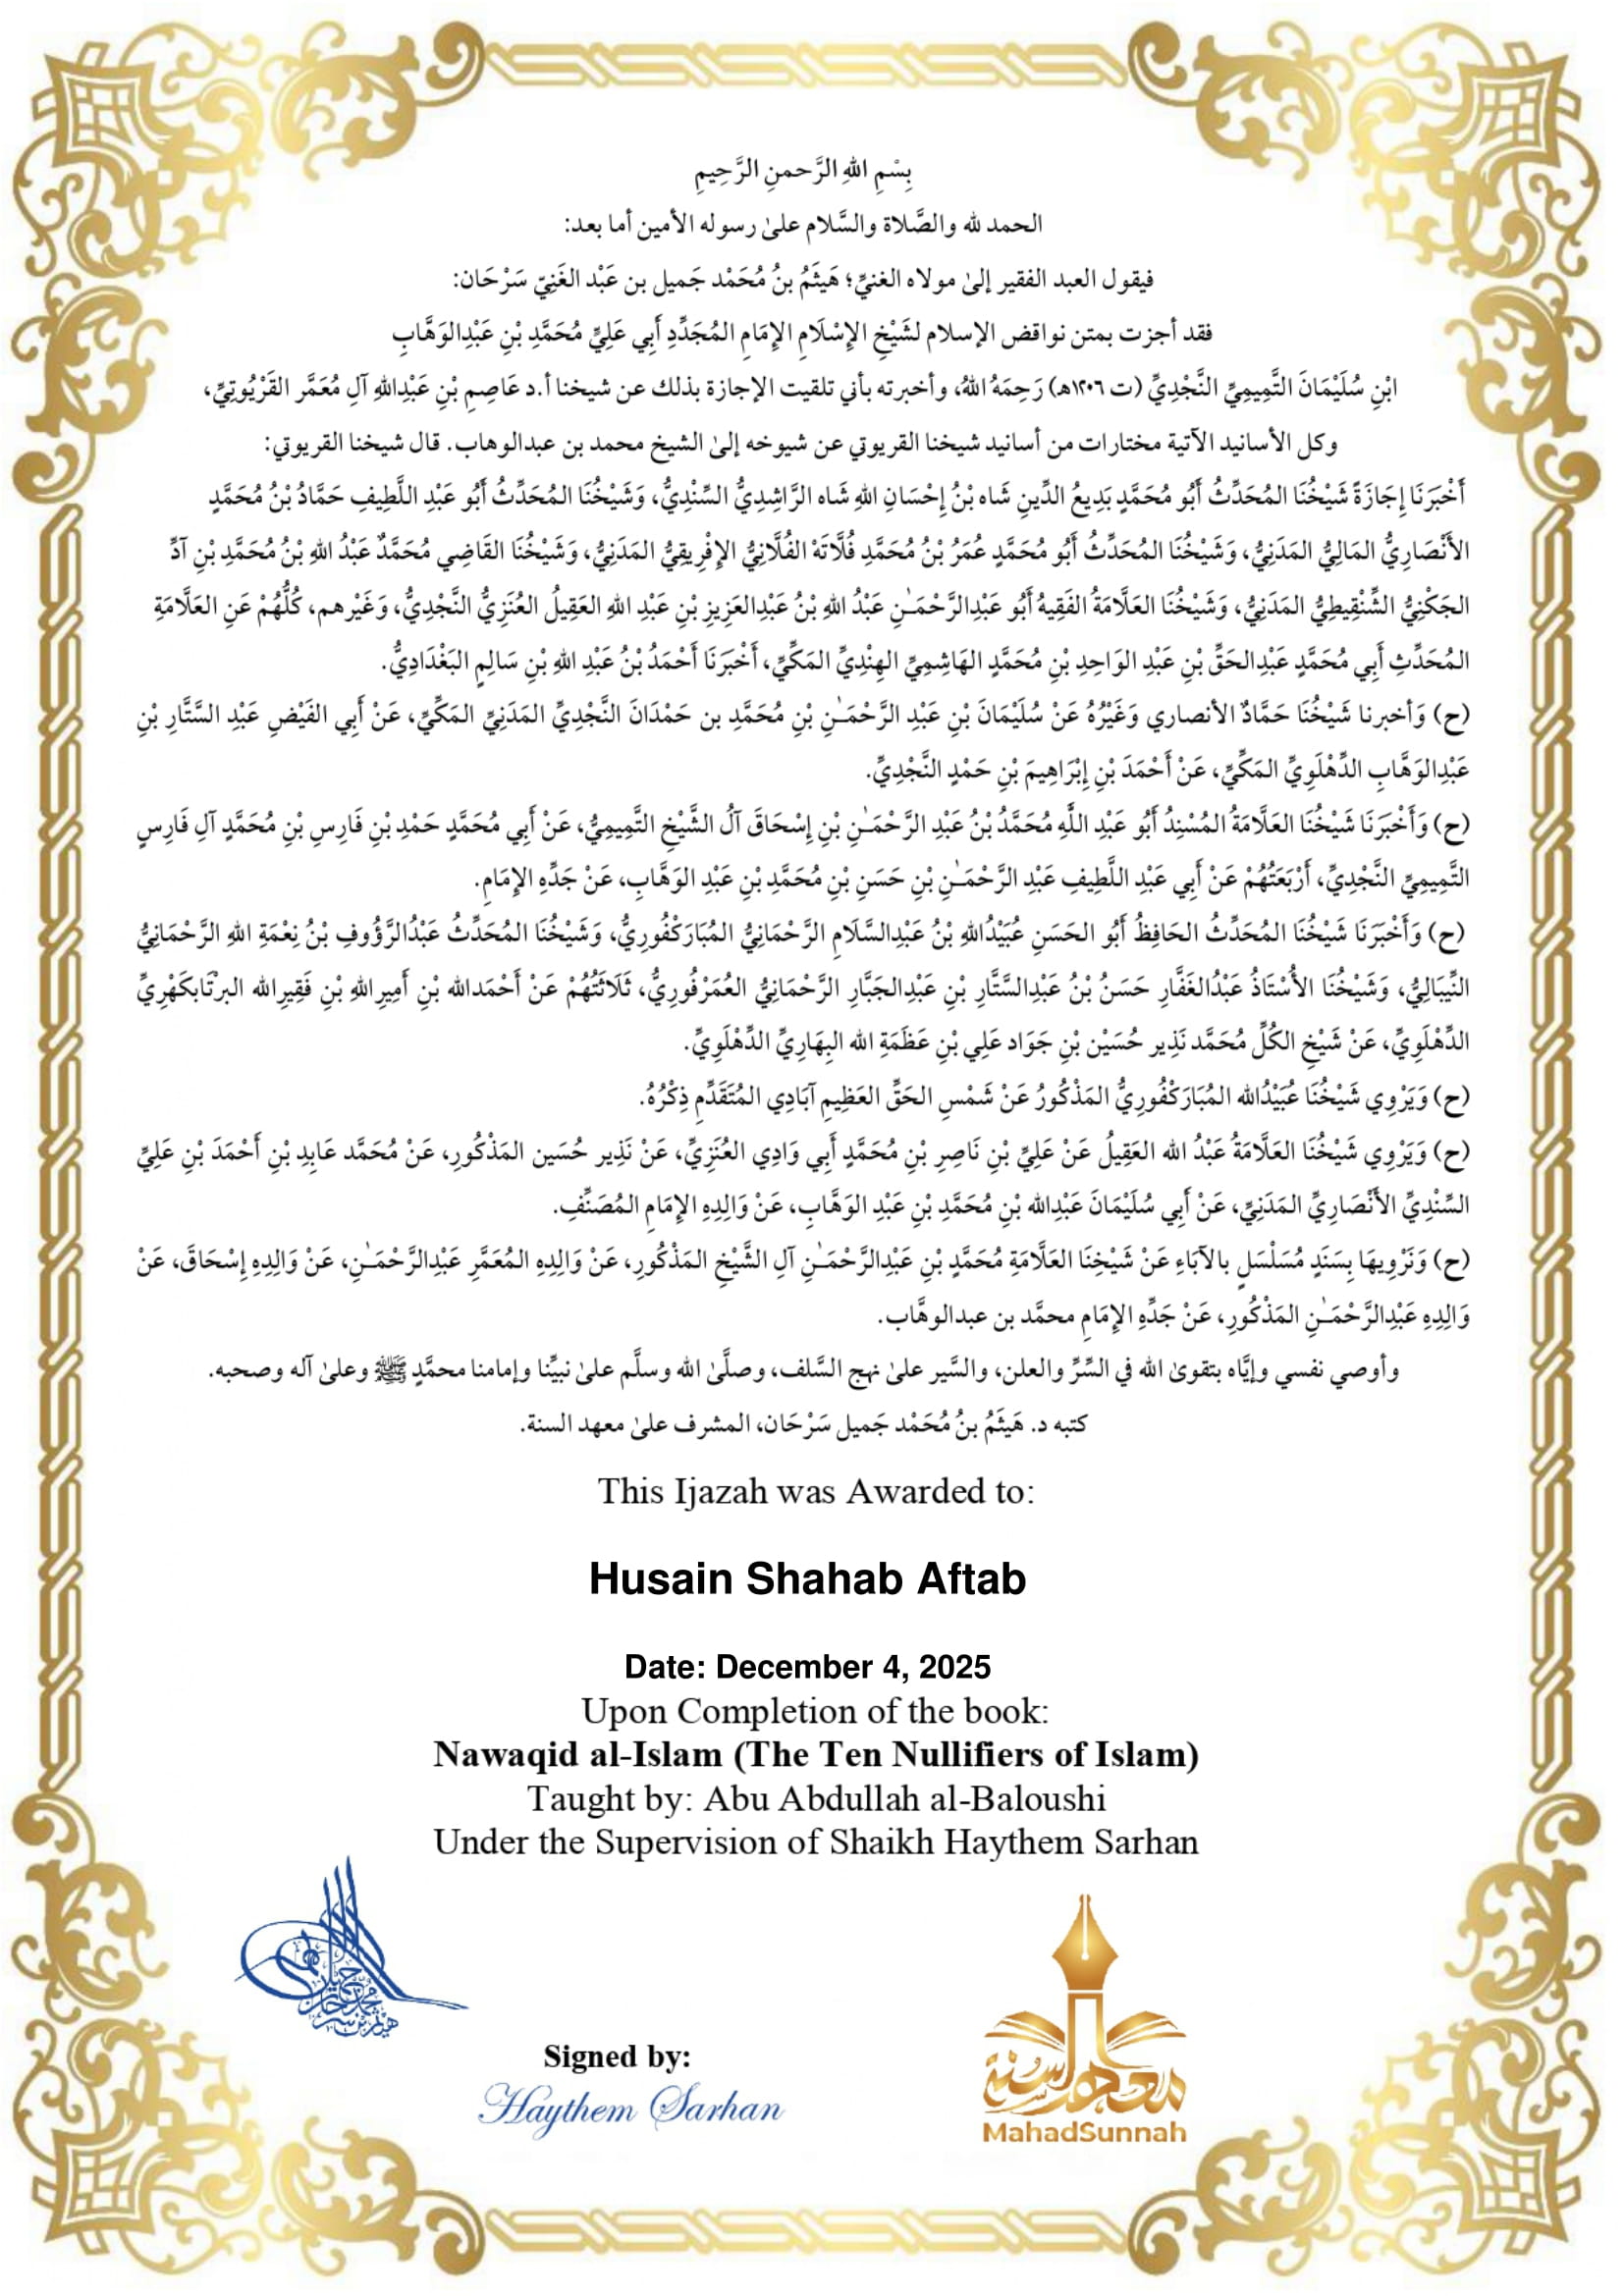 بِسْمِ اللهِ الرَّحمنِ الرَّحِيمِ
الحمد لله والصَّلاة والسَّلام علىٰ رسوله الأمين أما بعد:
فيقول العبد الفقير إلىٰ مولاه الغنيِّ؛ هَيثَمُ بنُ مُحَمَّد جَميل بن عَبْد الغَنِيّ سَرْحَان:
فقد أجزت بمتن نواقض الإسلام لشَيْخِ الإِسْلَامِ الإِمَامِ المُجَدِّدِ أَبِي عَلِيٍّ مُحَمَّدِ بْنِ عَبْدِالوَهَّابِ
ابْنِ سُلَيْمَانَ التَّمِيمِيِّ النَّجْدِيِّ (ت ١٢٠٦هـ) رَحِمَهُ اللهُ، وأخبرته بأني تلقيت الإجازة بذلك عن شيخنا أ.د عَاصِمِ بْنِ عَبْدِاللهِ آلِ مُعَمَّر القَرْيُوتِيِّ،
وكل الأسانيد الآتية مختارات من أسانيد شيخنا القريوتي عن شيوخه إلىٰ الشيخ محمد بن عبدالوهاب. قال شيخنا القريوتي:
أَخْبَرَنَا إِجَازَةً شَيْخُنَا المُحَدِّثُ أَبُو مُحَمَّدٍ بَدِيعُ الدِّينِ شَاه بْنُ إِحْسَانِ اللهِ شَاه الرَّاشِدِيُّ السِّنْدِيُّ، وَشَيْخُنَا المُحَدِّثُ أَبُو عَبْدِ اللَّطِيفِ حَمَّادُ بْنُ مُحَمَّدٍ
الأَنْصَارِيُّ المَالِيُّ المَدَنِيُّ، وَشَيْخُنَا المُحَدِّثُ أَبُو مُحَمَّدٍ عُمَرُ بْنُ مُحَمَّدِ فُلَّاتَهْ الفُلَّانِيُّ الإِفْرِيقِيُّ المَدَنِيُّ، وَشَيْخُنَا القَاضِي مُحَمَّدٌ عَبْدُ اللهِ بْنُ مُحَمَّدِ بْنِ آدَّ
الجَكَنِيُّ الشِّنْقِيطِيُّ المَدَنِيُّ، وَشَيْخُنَا العَلَّامَةُ الفَقِيهُ أَبُو عَبْدِالرَّحْمَـٰنِ عَبْدُ اللهِ بْنُ عَبْدِالعَزِيزِ بْنِ عَبْدِ اللهِ العَقِيلُ العُنَزِيُّ النَّجْدِيُّ، وَغَيْرهم، كُلُّهُمْ عَنِ العَلَّامَةِ
المُحَدِّثِ أَبِي مُحَمَّدٍ عَبْدِالحَقِّ بْنِ عَبْدِ الوَاحِدِ بْنِ مُحَمَّدٍ الهَاشِمِيِّ الهِنْدِيِّ المَكِّيِّ، أَخْبَرَنَا أَحْمَدُ بْنُ عَبْدِ اللهِ بْنِ سَالِمٍ البَغْدَادِيُّ.
(ح) وَأخبرنا شَيْخُنَا حَمَّادٌ الأنصاري وَغَيْرُهُ عَنْ سُلَيْمَانَ بْنِ عَبْدِ الرَّحْمَـٰنِ بْنِ مُحَمَّدِ بن حَمْدَانَ النَّجْدِيِّ المَدَنِيِّ المَكِّيِّ، عَنْ أَبِي الفَيْضِ عَبْدِ السَّتَّارِ بْنِ
عَبْدِالوَهَّابِ الدِّهْلَوِيِّ المَكِّيِّ، عَنْ أَحْمَدَ بْنِ إِبْرَاهِيمَ بْنِ حَمْدٍ النَّجْدِيِّ.
(ح) وَأَخْبَرَنَا شَيْخُنَا العَلَّامَةُ المُسْنِدُ أَبُو عَبْدِ اللَّهِ مُحَمَّدُ بْنُ عَبْدِ الرَّحْمَـٰنِ بْنِ إِسْحَاقَ آلُ الشَّيْخِ التَّمِيمِيُّ، عَنْ أَبِي مُحَمَّدٍ حَمْدِ بْنِ فَارِسِ بْنِ مُحَمَّدٍ آلِ فَارِسٍ
التَّمِيمِيِّ النَّجْدِيِّ، أَرْبَعَتُهُمْ عَنْ أَبِي عَبْدِ اللَّطِيفِ عَبْدِ الرَّحْمَـٰنِ بْنِ حَسَنِ بْنِ مُحَمَّدِ بْنِ عَبْدِ الوَهَّابِ، عَنْ جَدِّهِ الإِمَامِ.
(ح) وَأَخْبَرَنَا شَيْخُنَا المُحَدِّثُ الحَافِظُ أَبُو الحَسَنِ عُبَيْدُاللهِ بْنُ عَبْدِالسَّلَامِ الرَّحْمَانِيُّ المُبَارَكْفُورِيُّ، وَشَيْخُنَا المُحَدِّثُ عَبْدُالرَّؤُوفِ بْنُ نِعْمَةِ اللهِ الرَّحْمَانِيُّ
النِّيبَالِيُّ، وَشَيْخُنَا الأُسْتَاذُ عَبْدُالغَفَّارِ حَسَنُ بْنُ عَبْدِالسَّتَّارِ بْنِ عَبْدِالجَبَّارِ الرَّحْمَانِيُّ العُمَرْفُورِيُّ، ثَلَاثَتُهُمْ عَنْ أَحْمَدالله بْنِ أَمِيرِاللهِ بْنِ فَقِيرِالله البرتَابكَهْرِيِّ
الدِّهْلَوِيِّ، عَنْ شَيْخِ الكُلِّ مُحَمَّد نَذِير حُسَيْن بْنِ جَوَاد عَلِي بْنِ عَظَمَةِ الله البِهَارِيِّ الدِّهْلَوِيِّ.
(ح) وَيَرْوِي شَيْخُنَا عُبَيْدُالله المُبَارَكْفُورِيُّ المَذْكُورُ عَنْ شَمْسِ الحَقِّ العَظِيمِ آبَادِي المُتَقَدِّمِ ذِكْرُهُ.
(ح) وَيَرْوِي شَيْخُنَا العَلَّامَةُ عَبْدُ الله العَقِيلُ عَنْ عَلِيِّ بْنِ نَاصِرِ بْنِ مُحَمَّدٍ أَبِي وَادِي العُنَزِيِّ، عَنْ نَذِير حُسَين المَذْكُورِ، عَنْ مُحَمَّد عَابِدِ بْنِ أَحْمَدَ بْنِ عَلِيٍّ
السِّنْدِيِّ الأَنْصَارِيِّ المَدَنِيِّ، عَنْ أَبِي سُلَيْمَانَ عَبْدِالله بْنِ مُحَمَّدِ بْنِ عَبْدِ الوَهَّابِ، عَنْ وَالِدِهِ الإِمَامِ المُصَنِّفِ.
(ح) وَنَرْوِيهَا بِسَنَدٍ مُسَلْسَلٍ بالآبَاءِ عَنْ شَيْخِنَا العَلَّامَةِ مُحَمَّدِ بْنِ عَبْدِالرَّحْمَـٰنِ آلِ الشَّيْخِ المَذْكُورِ، عَنْ وَالِدِهِ المُعَمَّرِ عَبْدِالرَّحْمَـٰنِ، عَنْ وَالِدِهِ إِسْحَاقَ، عَنْ
وَالِدِهِ عَبْدِالرَّحْمَـٰنِ المَذْكُورِ، عَنْ جَدِّهِ الإِمَامِ محمَّد بن عبدالوهَّاب.
وأوصي نفسي وإيَّاه بتقوىٰ الله في السِّرِّ والعلن، والسَّير علىٰ نهج السَّلف، وصلَّىٰ الله وسلَّم علىٰ نبيِّنا وإمامنا محمَّدٍ ﷺ وعلىٰ آله وصحبه.
كتبه د. هَيثَمُ بنُ مُحَمَّد جَميل سَرْحَان، المشرف علىٰ معهد السنة.
This Ijazah was Awarded to:
Husain Shahab Aftab
Date: December 4, 2025
Upon Completion of the book:
Nawaqid al-Islam (The Ten Nullifiers of Islam)
Taught by: Abu Abdullah al-Baloushi
Under the Supervision of Shaikh Haythem Sarhan
Signed by:
Haythem Sarhan
معهد السنة
MahadSunnah